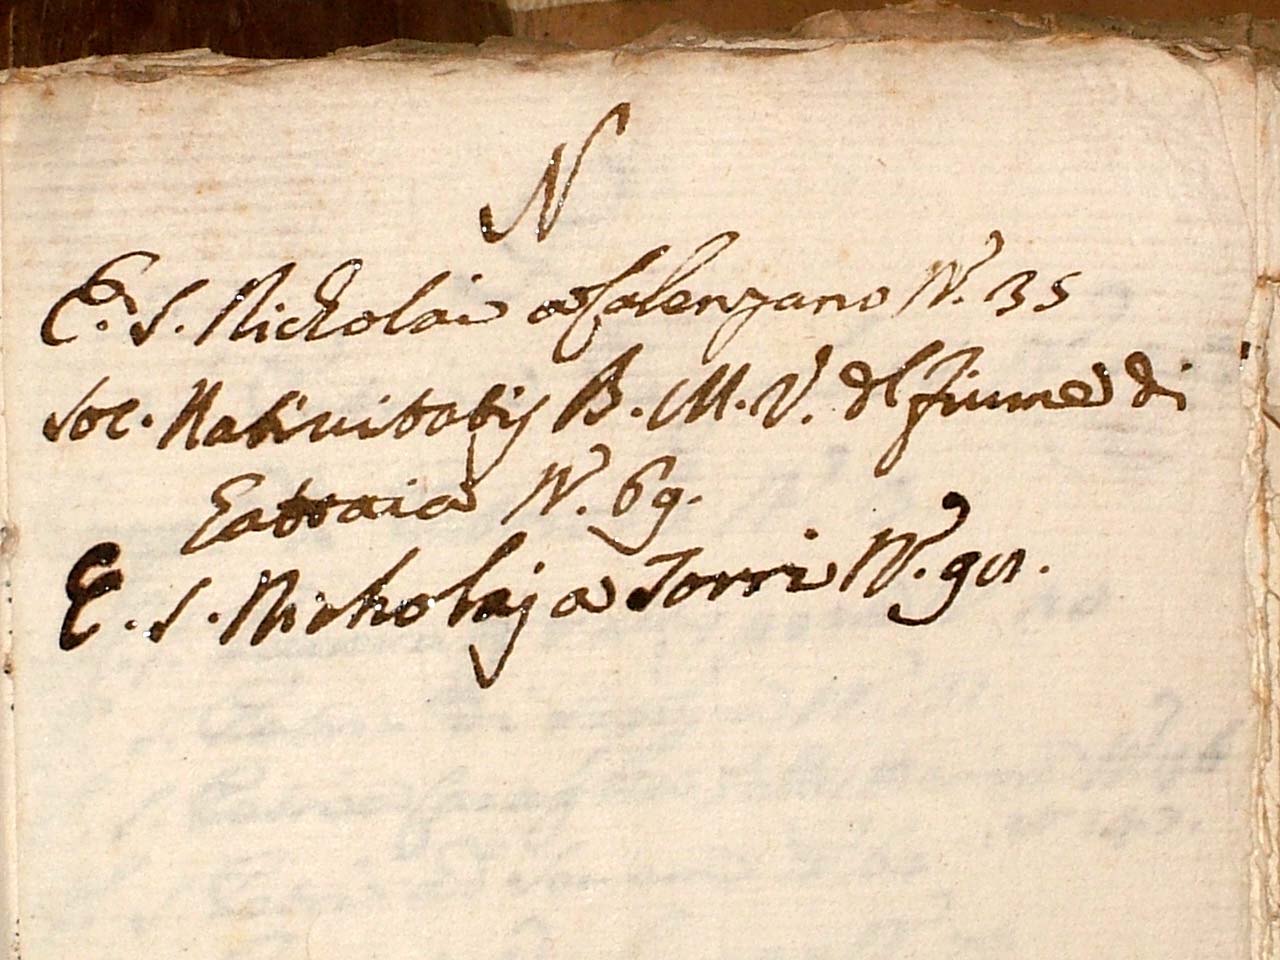 N
E. S. Nicholai a Calenzano N. 35
Soc. Nativitatis B. M. V. del fiume di
N. 69.
E. S. Nicholaj a Torri N.